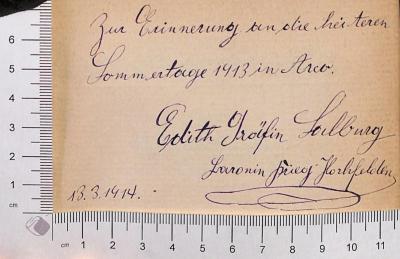 Zur Erinnerung an die heiteren
Sommertage 1913 in Arco.
Edith Gräfin Salburg
Baronin Krieg-Hochfelden
13.3.1914.
6
5
4
3
2
1
cm
cm 1 2 3 4 5 6 7 8 9 10 11